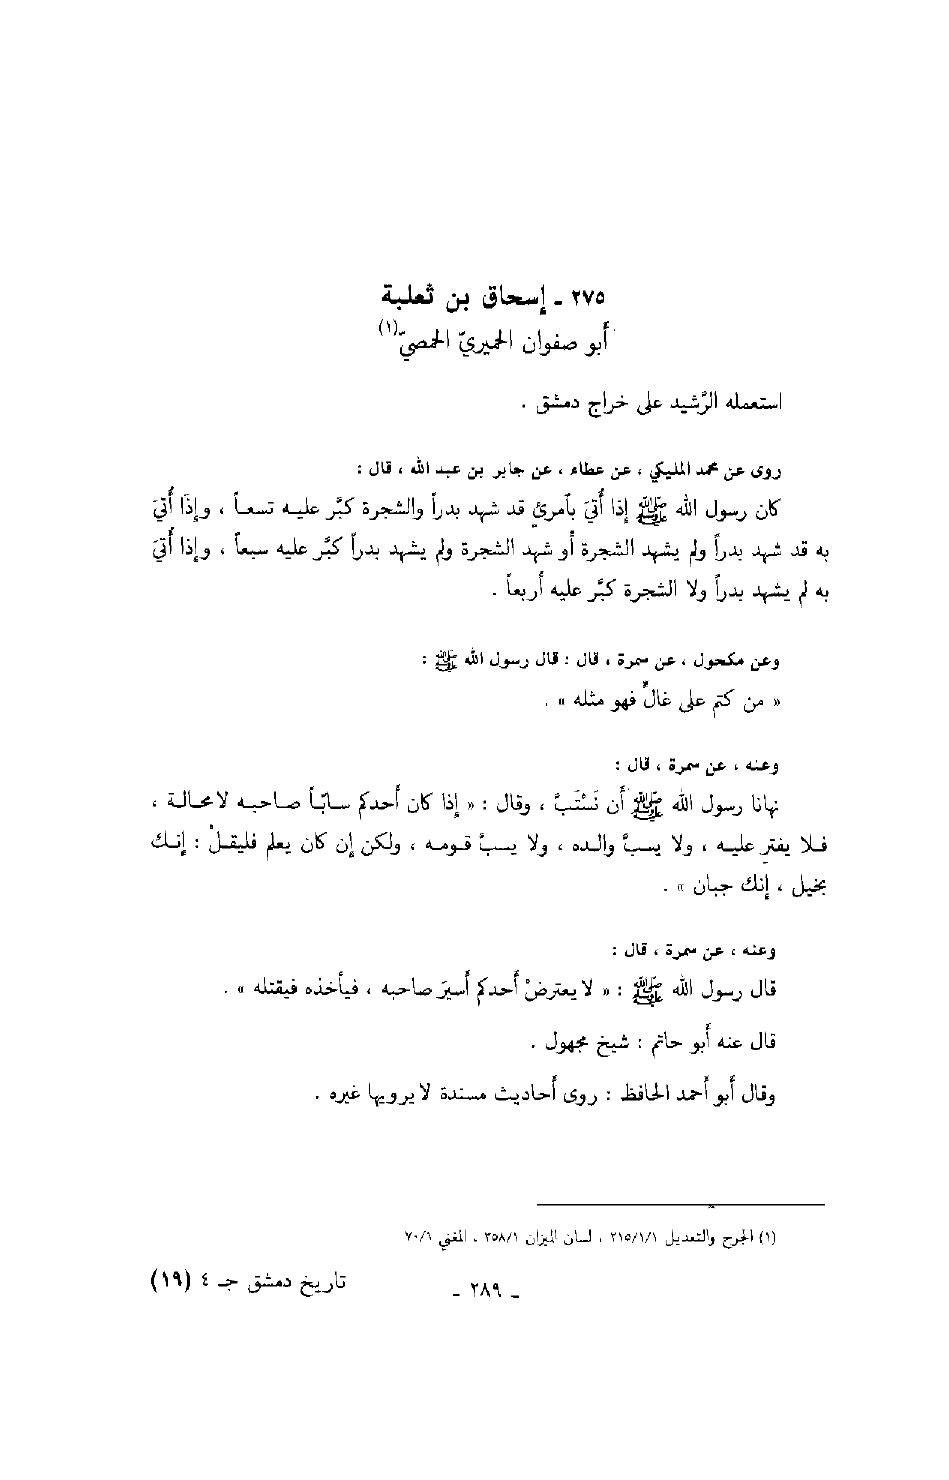 ٢٧٥ ـ إسحاق بن ثعلبة
أبو صفوان الحميريّ الحمصيّ(١)
استعمله الرَّشيد على خراج دمشق .
روى عن محمد المليكي ، عن عطاء ، عن جابر بن عبد الله ، قال :
كان رسول الله ﷺ إذا أُتيَ بآمرئٍ قد شهد بدراً والشجرة كبَّر عليـه تسعـاً ، وإذَا أُتيَ
به قد شهد بدراً ولم يشهد الشجرة أو شهد الشجرة ولم يشهد بدراً كبَّر عليه سبعاً ، وإذا أُتيَ
به لم يشهد بدراً ولا الشجرة كبَّر عليه أربعاً .
وعن مكحول ، عن سمرة ، قال : قال رسول الله ﷺ :
« من كتم على غالٍّ فهو مثله » .
وعنه ، عن سمرة ، قال :
نهانا رسول الله ﷺ أن نَسْتَبَّ ، وقال : « إذا كان أحدكم سـابّـاً صـاحبـه لا محـالـة ،
فـلا يفترِ عليـه ، ولا يسبَّ والـده ، ولا يسبَّ قـومـه ، ولكن إن كان يعلم فليقلْ : إنـك
بخيل ، إنك جبان » .
وعنه ، عن سمرة ، قال :
قال رسول الله ﷺ : « لا يعترضْ أحدكم أسيرَ صاحبه ، فيأخذه فيقتله » .
قال عنه أبو حاتم : شيخ مجهول .
وقال أبو أحمد الحافظ : روى أحاديث مسندة لا يرويها غيره .
(١) الجرح والتعديل ٢١٥/١/١ ، لسان الميزان ٣٥٨/١ ، المغني ٧٠/١
ـ ٢٨٩ ـ
تاريخ دمشق جـ ٤ (١٩)